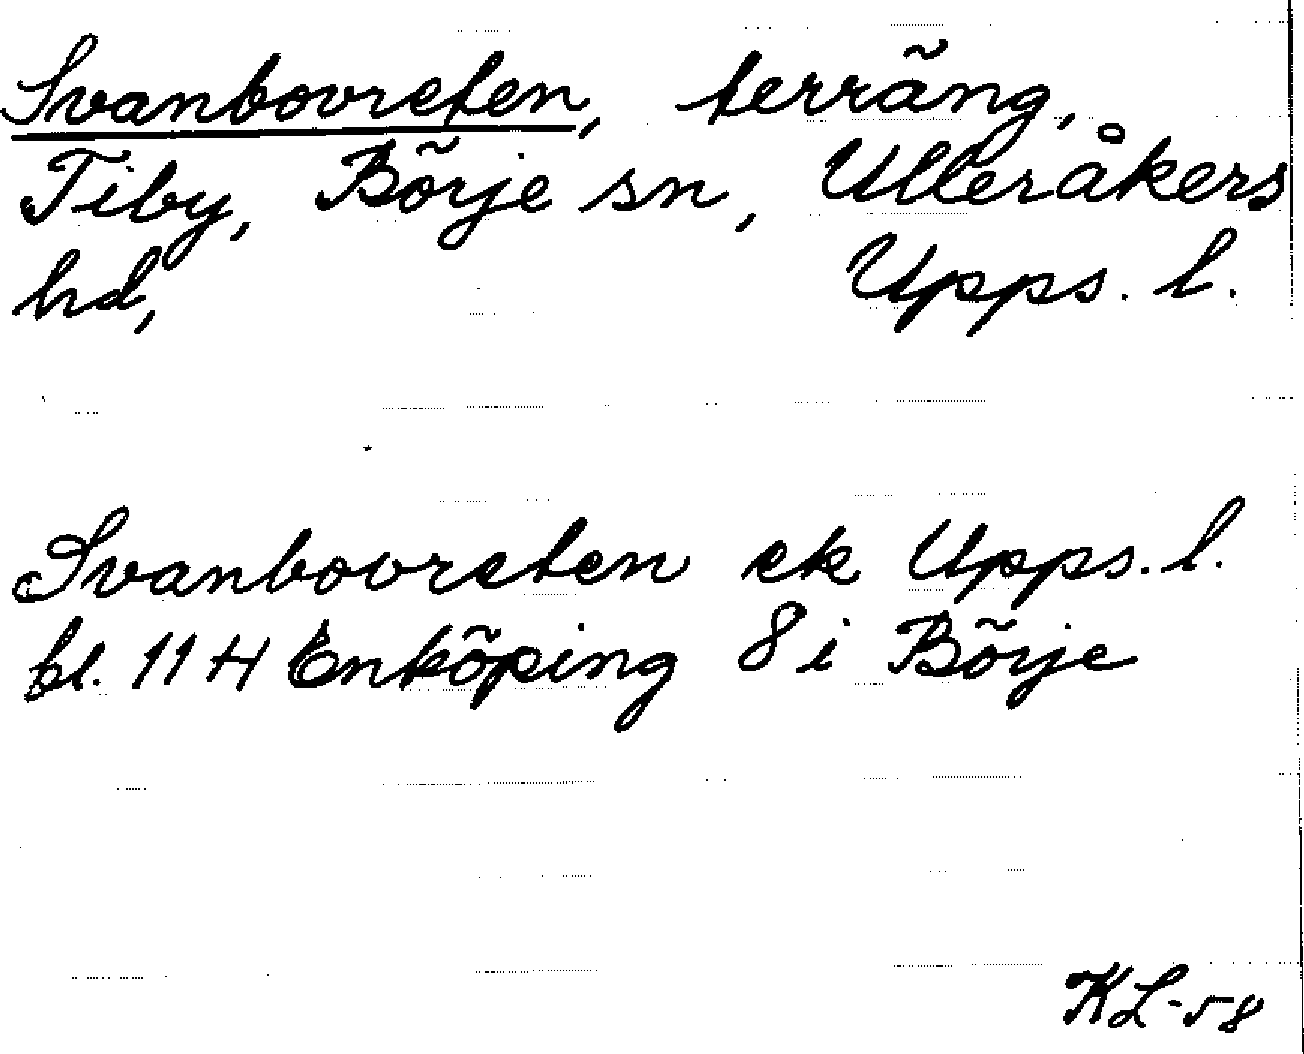 Svanbovreten, terräng,
Tiby, Börje sn, Ulleråkers
hd, Upps. l.
Svanbovreten ek Upps. l.
bl. 11 H Enköping 8 i Börje
KL-58